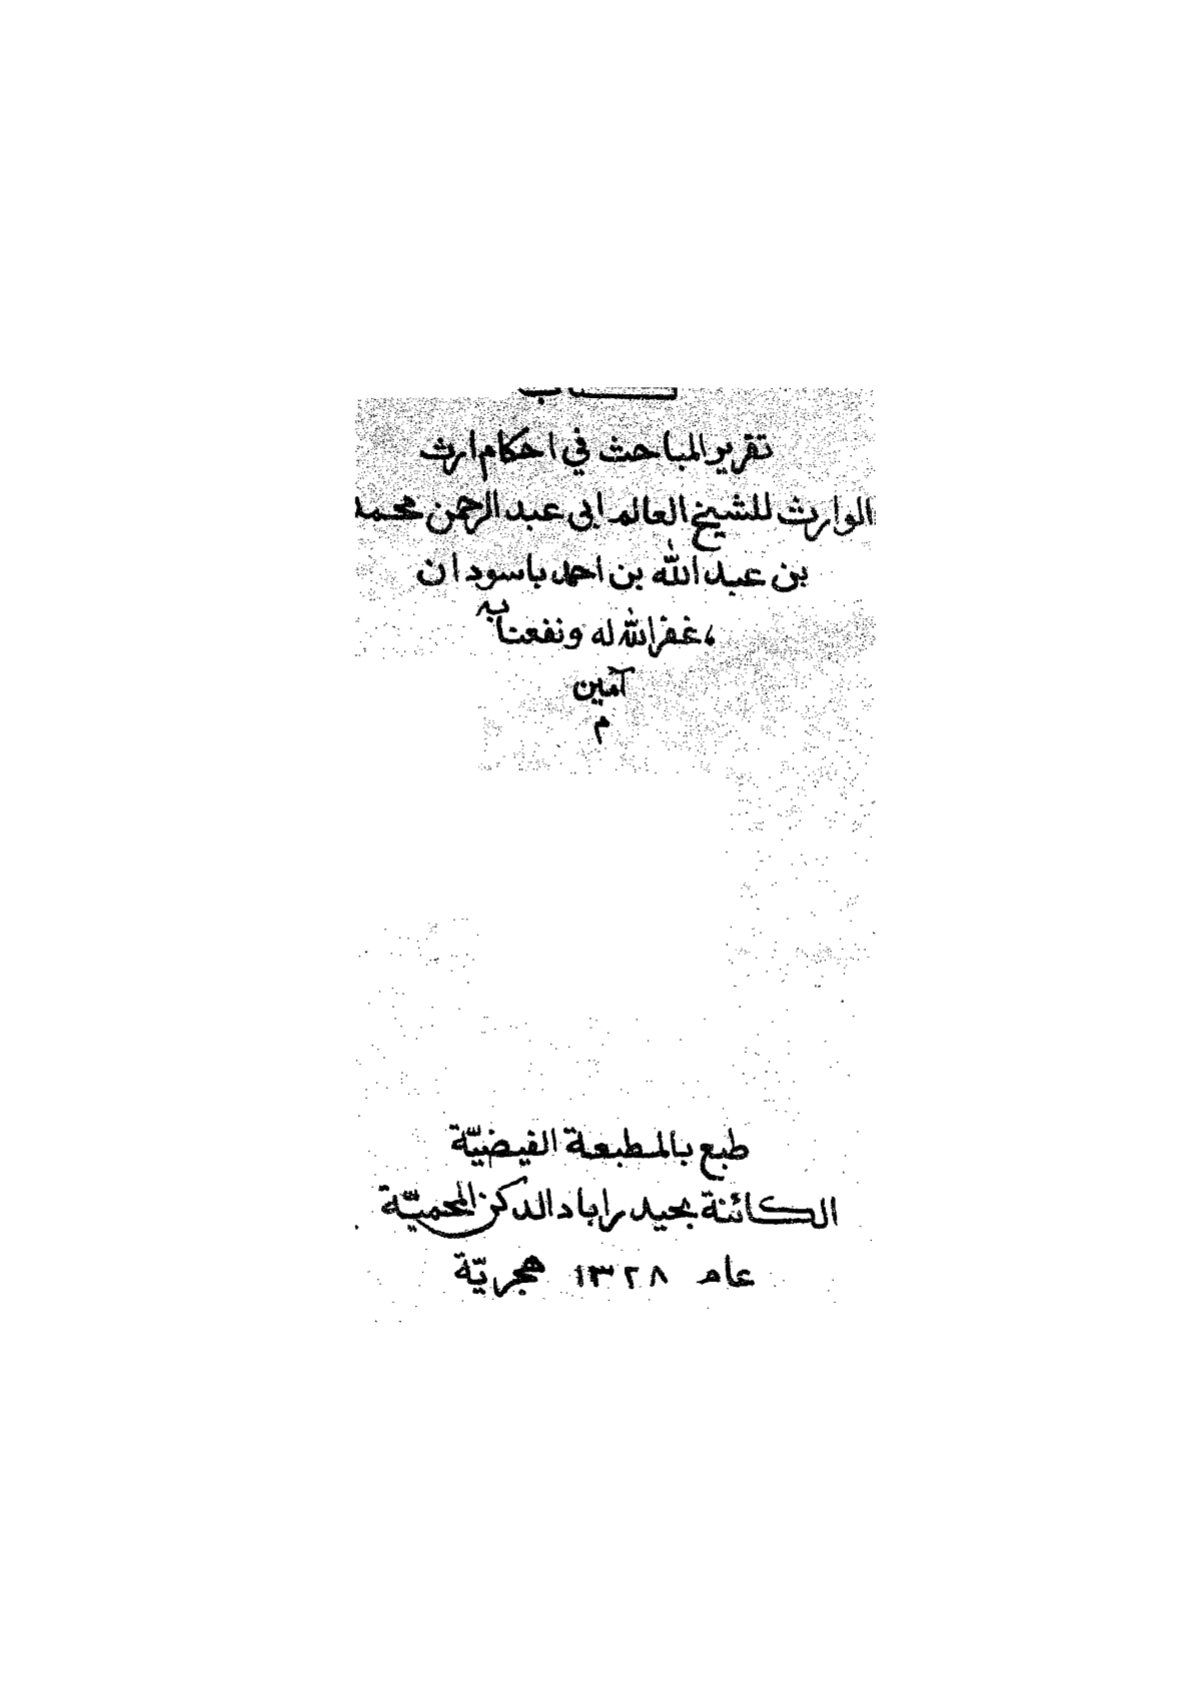 كتاب
تقرير المباحث في احكام ارث
الوارث للشيخ العالم ابي عبد الرحمن محمد
بن عبد الله بن احمد باسودان
غفر الله له ونفعنا به
آمين
م
طبع بالمطبعة الفيضيّة
الكائنة بحيدراباد الدكن المحميّة
عام ١٣٢٨ هجريّة